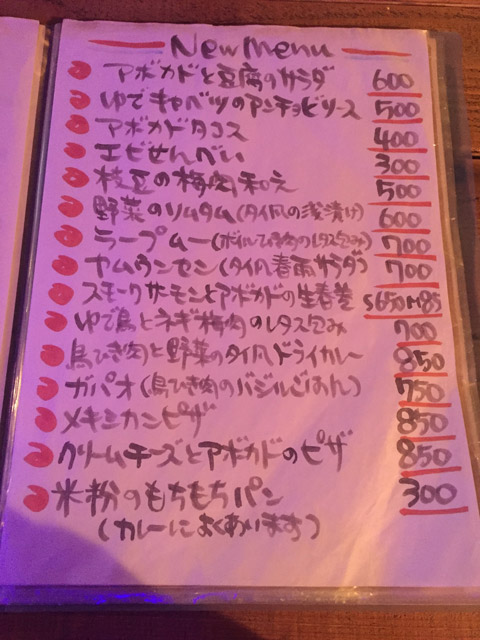 New Menu
アボカドと豆腐のサラダ 600
ゆでキャベツのアンチョビソース 500
アボカドタコス 400
エビせんべい 300
枝豆の梅肉和え 500
野菜のソムタム(タイ風の浅漬け) 600
ラープムー(ボイルひき肉のレタス包み) 700
ヤムウンセン(タイ風春雨サラダ) 700
スモークサーモンとアボカドの生春巻 S650 M85
ゆで鳥とネギ梅肉のレタス包み 700
鳥ひき肉と野菜のタイ風ドライカレー 850
ガパオ(鳥ひき肉のバジルごはん) 750
メキシカンピザ 850
クリームチーズとアボカドのピザ 850
米粉のもちもちパン 300
(カレーによくあいます)